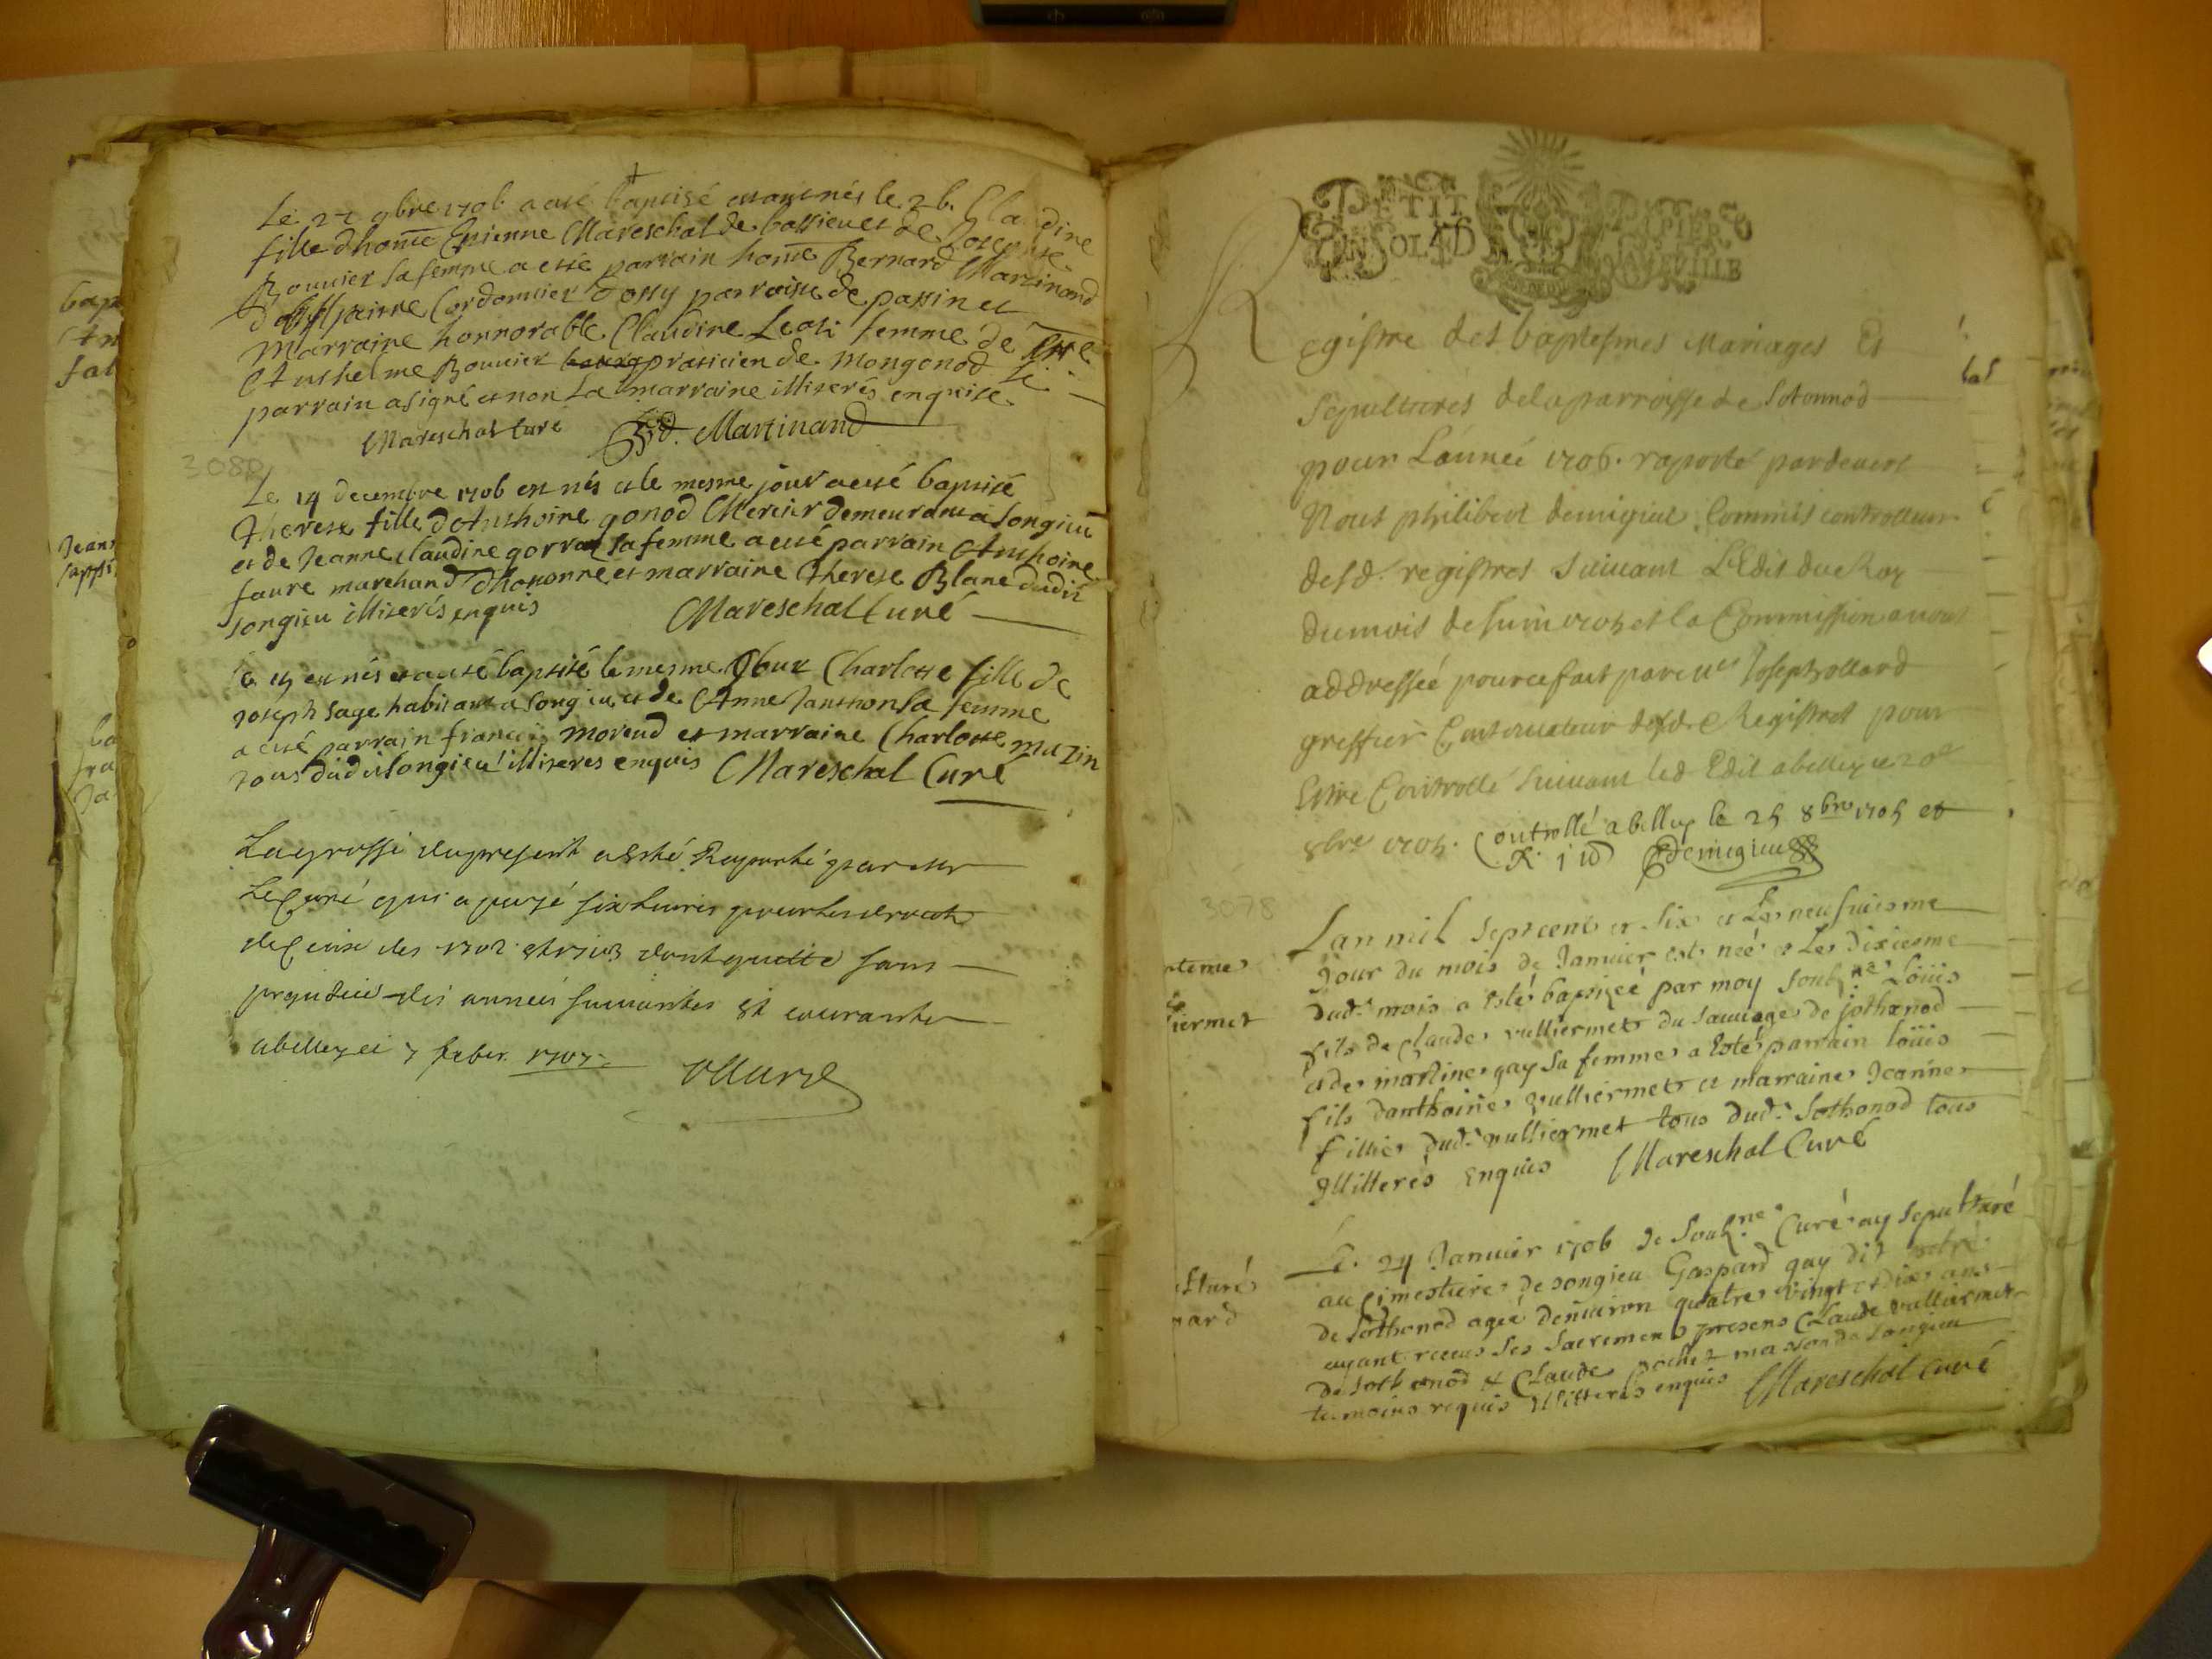 Le 27 9bre 1706 a esté baptisé estant nés le 26. Claudine
fille d'hon̅e Estienne Mareschal de bassieu et de Josephte
Bouvier sa femme a esté parrain hon̅e Bernard Martinand
Cordonnier dossy parroisse de passin et
marraine honnorable Claudine femme de
Anthelme Bouvier praticien de Mongonod le
parrain a signé et non la marraine illiterés enquise
Mareschal Curé Bd. Martinand
3080
Le 14 decembre 1706 est nés et le mesme jour a esté baptisé
Therese fille d'Anthoine gonod Mercier demeurant a Songieu
et de Jeanne Claudine gorraz sa femme a esté parrain Anthoine
faure marchand d'hotonne et marraine Therese Blanc dudit
songieu illiterés enquis Mareschal Curé
Le 15 est nés et a esté baptisé le mesme jour Charlotte fille de
Joseph Sage habitant a Songieu et de Anne Janthon sa femme
a esté parrain francois morend et marraine Charlotte mazin
tous dudit songieu illiteres enquis Mareschal Curé
La grosse du present a esté Raporté par mr
le Curé qui a payé six livres pour les droits
de ceux des 1702 et 1703 dont quitte sans
prejudice des années suivantes et courante
a belley ce 7 feber 1707
PETIT PAPIER
UN SOL 4 D LA FEUILLE
Registre des baptesmes Mariages Et
Sepultures de la parroisse de Sotonnod
pour L'année 1706. raporté pardevant
Nous philibert demigieu Commis controlleur
desd. registres suivant L'Edit du Roy
du mois de Juin 1705 et la Commission a nous
addressée pour ce fait par Mr Joseph ollard
greffier Conservateur desd. Registres pour
Estre Controllé suivant led Edit a belley ce 20e
8bre 1705. Controllé a belley le 25 8bre 1705 et
R. 1 10 Demigieu
3078
Lan mil sept cent et six et Le neufviesme
Jour du mois de Janvier est née et Le dixiesme
dud. mois a esté baptizéé par moy soubz.ne Loüis
fils de Claude vulliermet du sauvage de sothonod
et de martine gay sa femme a Esté parrain loüis
fils danthoine vulliermet et marraine Jeanne
fillie dud. vulliermet tous dud. Sothonod tous
Illitterés Enquis Mareschal Curé
Le 24 Janvier 1706 Je soubz.ne Curé ay sepulturé
au cimestiere de songieu Gaspard gay dit
de sothonod ageé denviron quatre vingt et dix ans
ayant receus ses sacremens presens Claude vulliermet
de sothonod et Claude pochet masson de Songieu
temoins requis Illitterés enquis Mareschal Curé